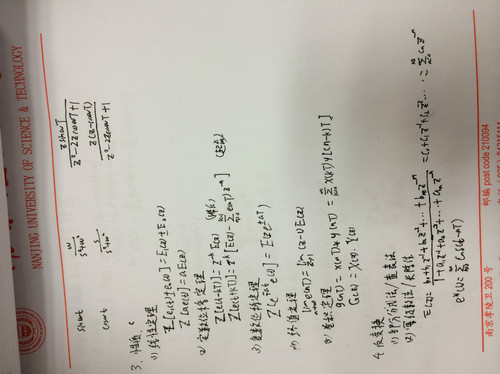 NANJING UNIVERSITY OF SCIENCE & TECHNOLOGY
sinωt ω/(s²+ω²) z sinωT/(z²-2z cosωT+1)
cosωt s/(s²+ω²) z(z-cosωT)/(z²-2z cosωT+1)
3. 性质
(1) 线性定理
Z[e₁(t)±e₂(t)]=E₁(z)±E₂(z)
Z[ae(t)]=aE(z)
(2) 实数位移定理
Z[e(t-kT)]=z⁻ᵏE(z) (滞后)
Z[e(t+kT)]=zᵏ[E(z)-Σe(nT)z⁻ⁿ] (超前)
(3) 复数位移定理
Z[e^{∓at}e(t)]=E(ze^{±aT})
(4) 终值定理
lim e(nT)=lim (z-1)E(z)
(5) 卷积定理
g(nT)=x(nT)*y(nT)=Σx(kT)y[(n-k)T]
G(z)=X(z)·Y(z)
4. 反变换
(1) 部分分式法/查表法
(2) 幂级数法/长除法
E(z)=(b₀+b₁z⁻¹+b₂z⁻²+…+bₘz⁻ᵐ)/(1+a₁z⁻¹+a₂z⁻²+…+aₙz⁻ⁿ)=c₀+c₁z⁻¹+c₂z⁻²…=Σcₙz⁻ⁿ
e*(t)=Σcₙδ(t-nT)
南京孝陵卫 200 号 邮编 post code 210094